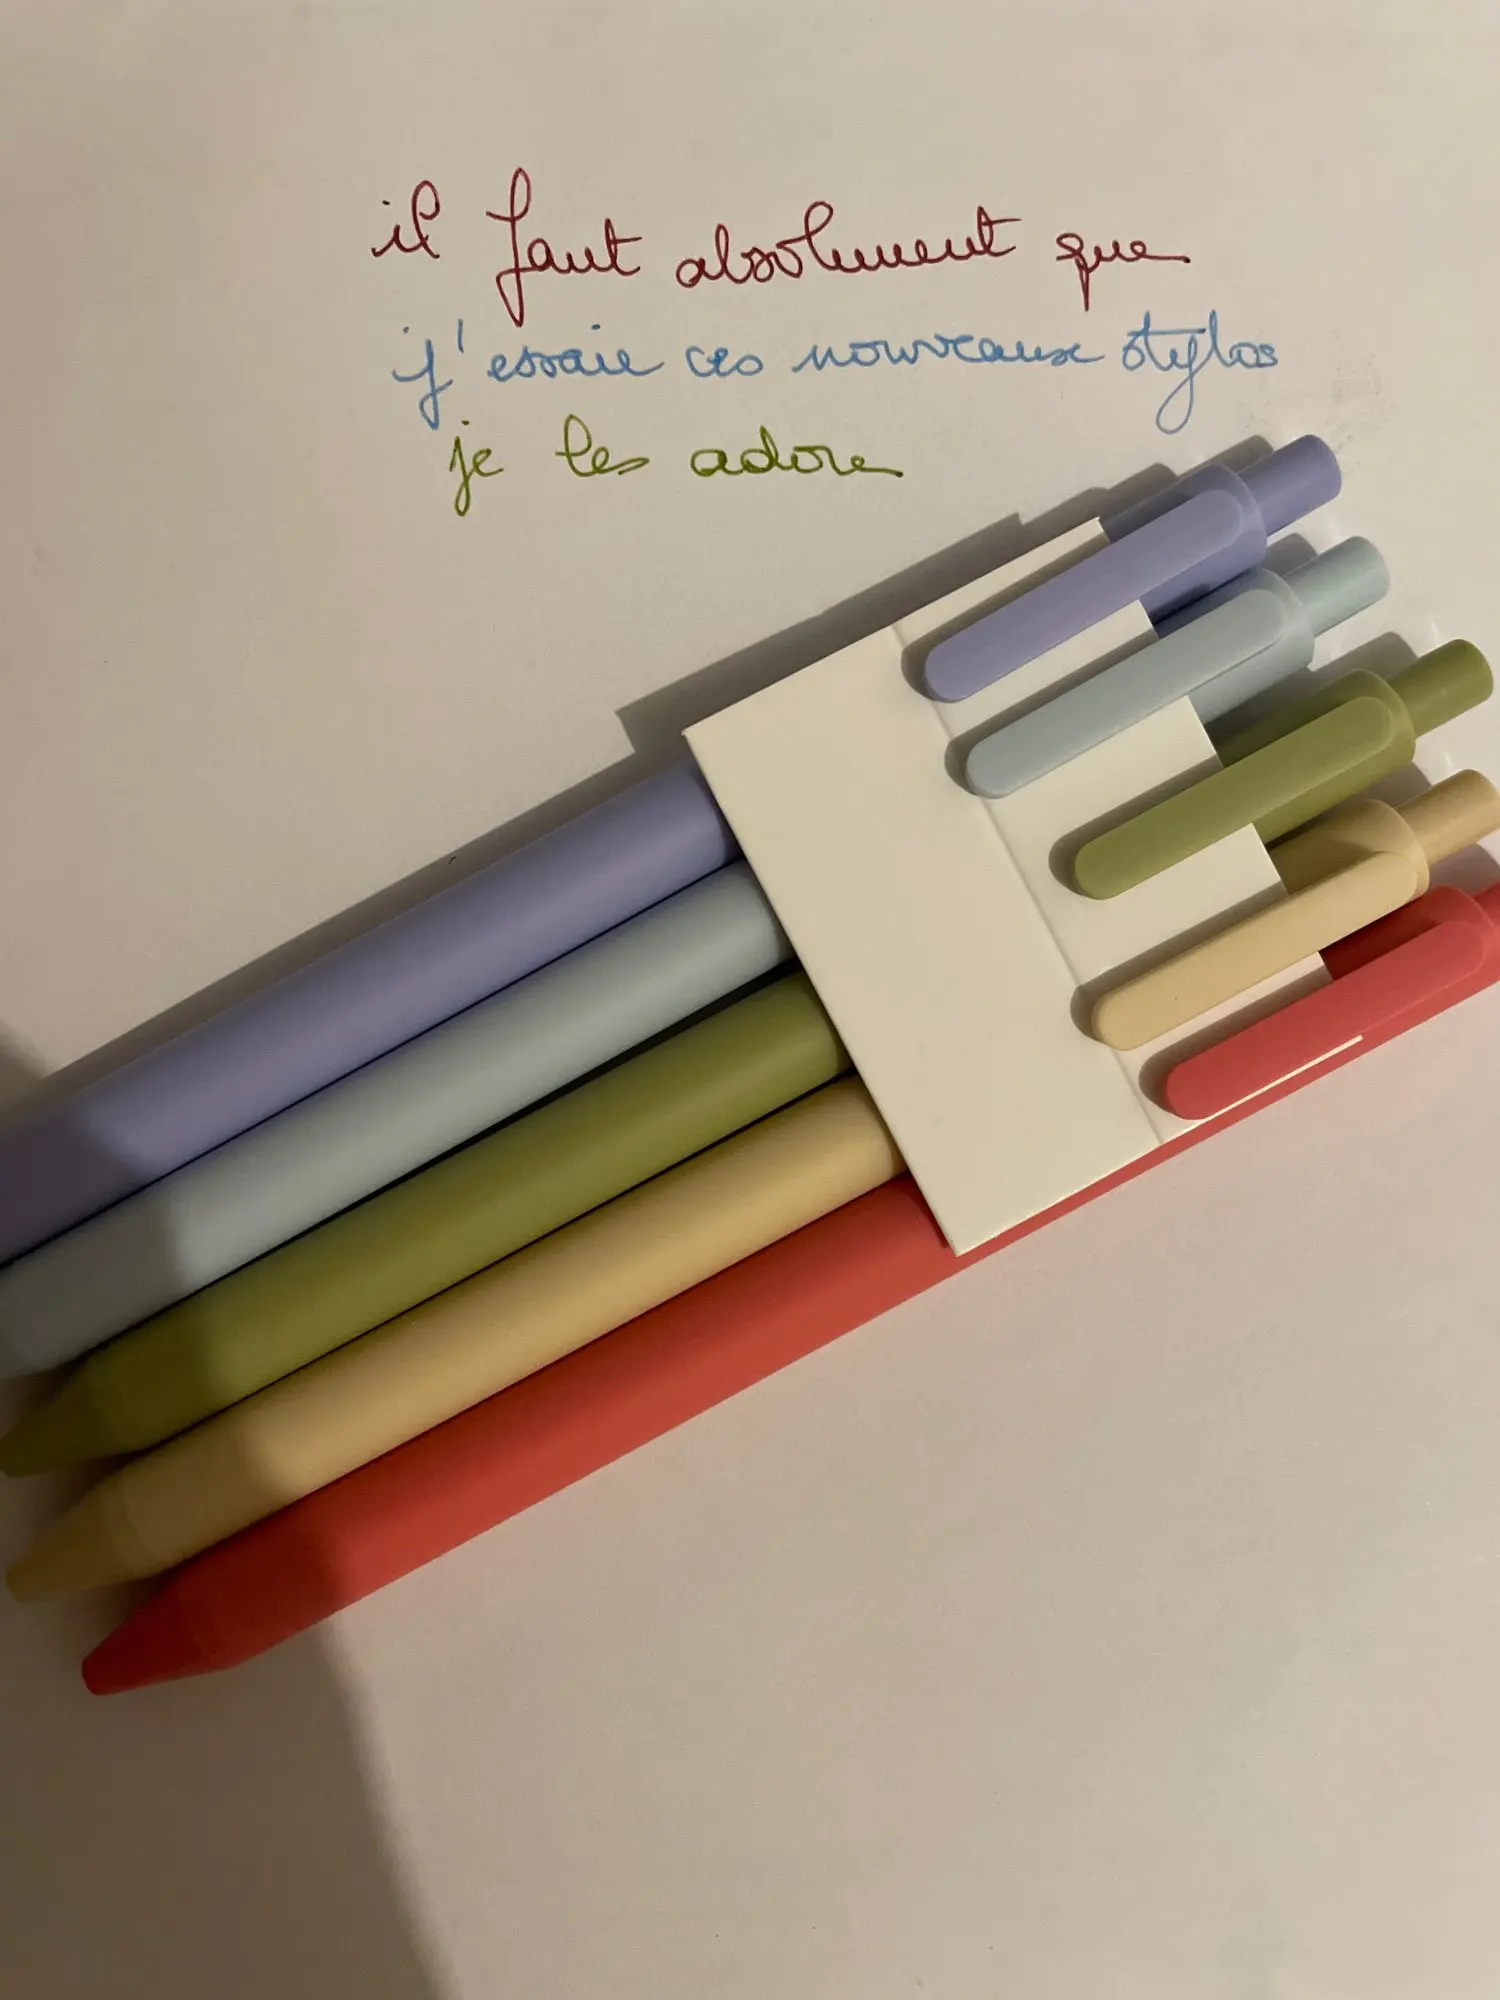 il faut absolument que
j'essaie ces nouveaux stylos
je les adore